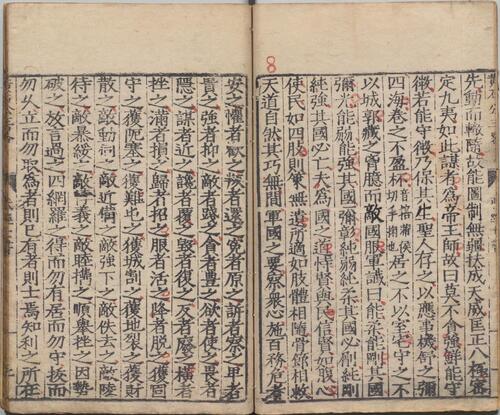 8
先動而輒隨故能圖制無疆扶成天威匡正八極密
定九夷如此謀者為帝王師故曰莫不貪強鮮能守
微若能守微乃保其生聖人存之以應事機舒之彌
四海卷之不盈杯居之不以室宅守之不
以城郭藏之胷臆而敵國服軍讖曰能柔能剛其國
彌光能弱能強其國彌彰純弱純柔其國必削純剛
純強其國必亡夫為國之道恃賢與民信賢如腹心
使民如四肢則策無遺所適如肢體相隨骨節相救
天道自然其巧無間軍國之要察衆心施百務危者
安之懼者歡之叛者還之寃者原之訴者察之卑者
貴之強者抑之敵者殘之貪者豊之欲者使之畏者
隱之謀者近之讒者覆之毀者復之反者廢之横者
挫之滿者損之歸者招之服者活之降者脫之獲固
守之獲阨塞之獲難屯之獲城割之獲地裂之獲財
散之敵動伺之敵近備之敵強下之敵佚去之敵陵
待之敵暴綏之敵悖義之敵睦攜之順舉挫之因勢
破之放言過之四網羅之得而勿有居而勿守拔而
勿久立而勿取為者則己有者則士焉知利之所在